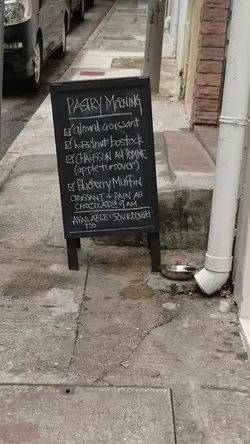 PASTRY MORNING
☑ almond croissant
☑ hazelnut bostock
☑ CHAUSSON AU POMME
(apple turnover)
☑ Blueberry Muffin
CROISSANT + PAIN AU
CHOCOLAT @ 9 AM
AVAILABLE: SOURDOUGH
TOO